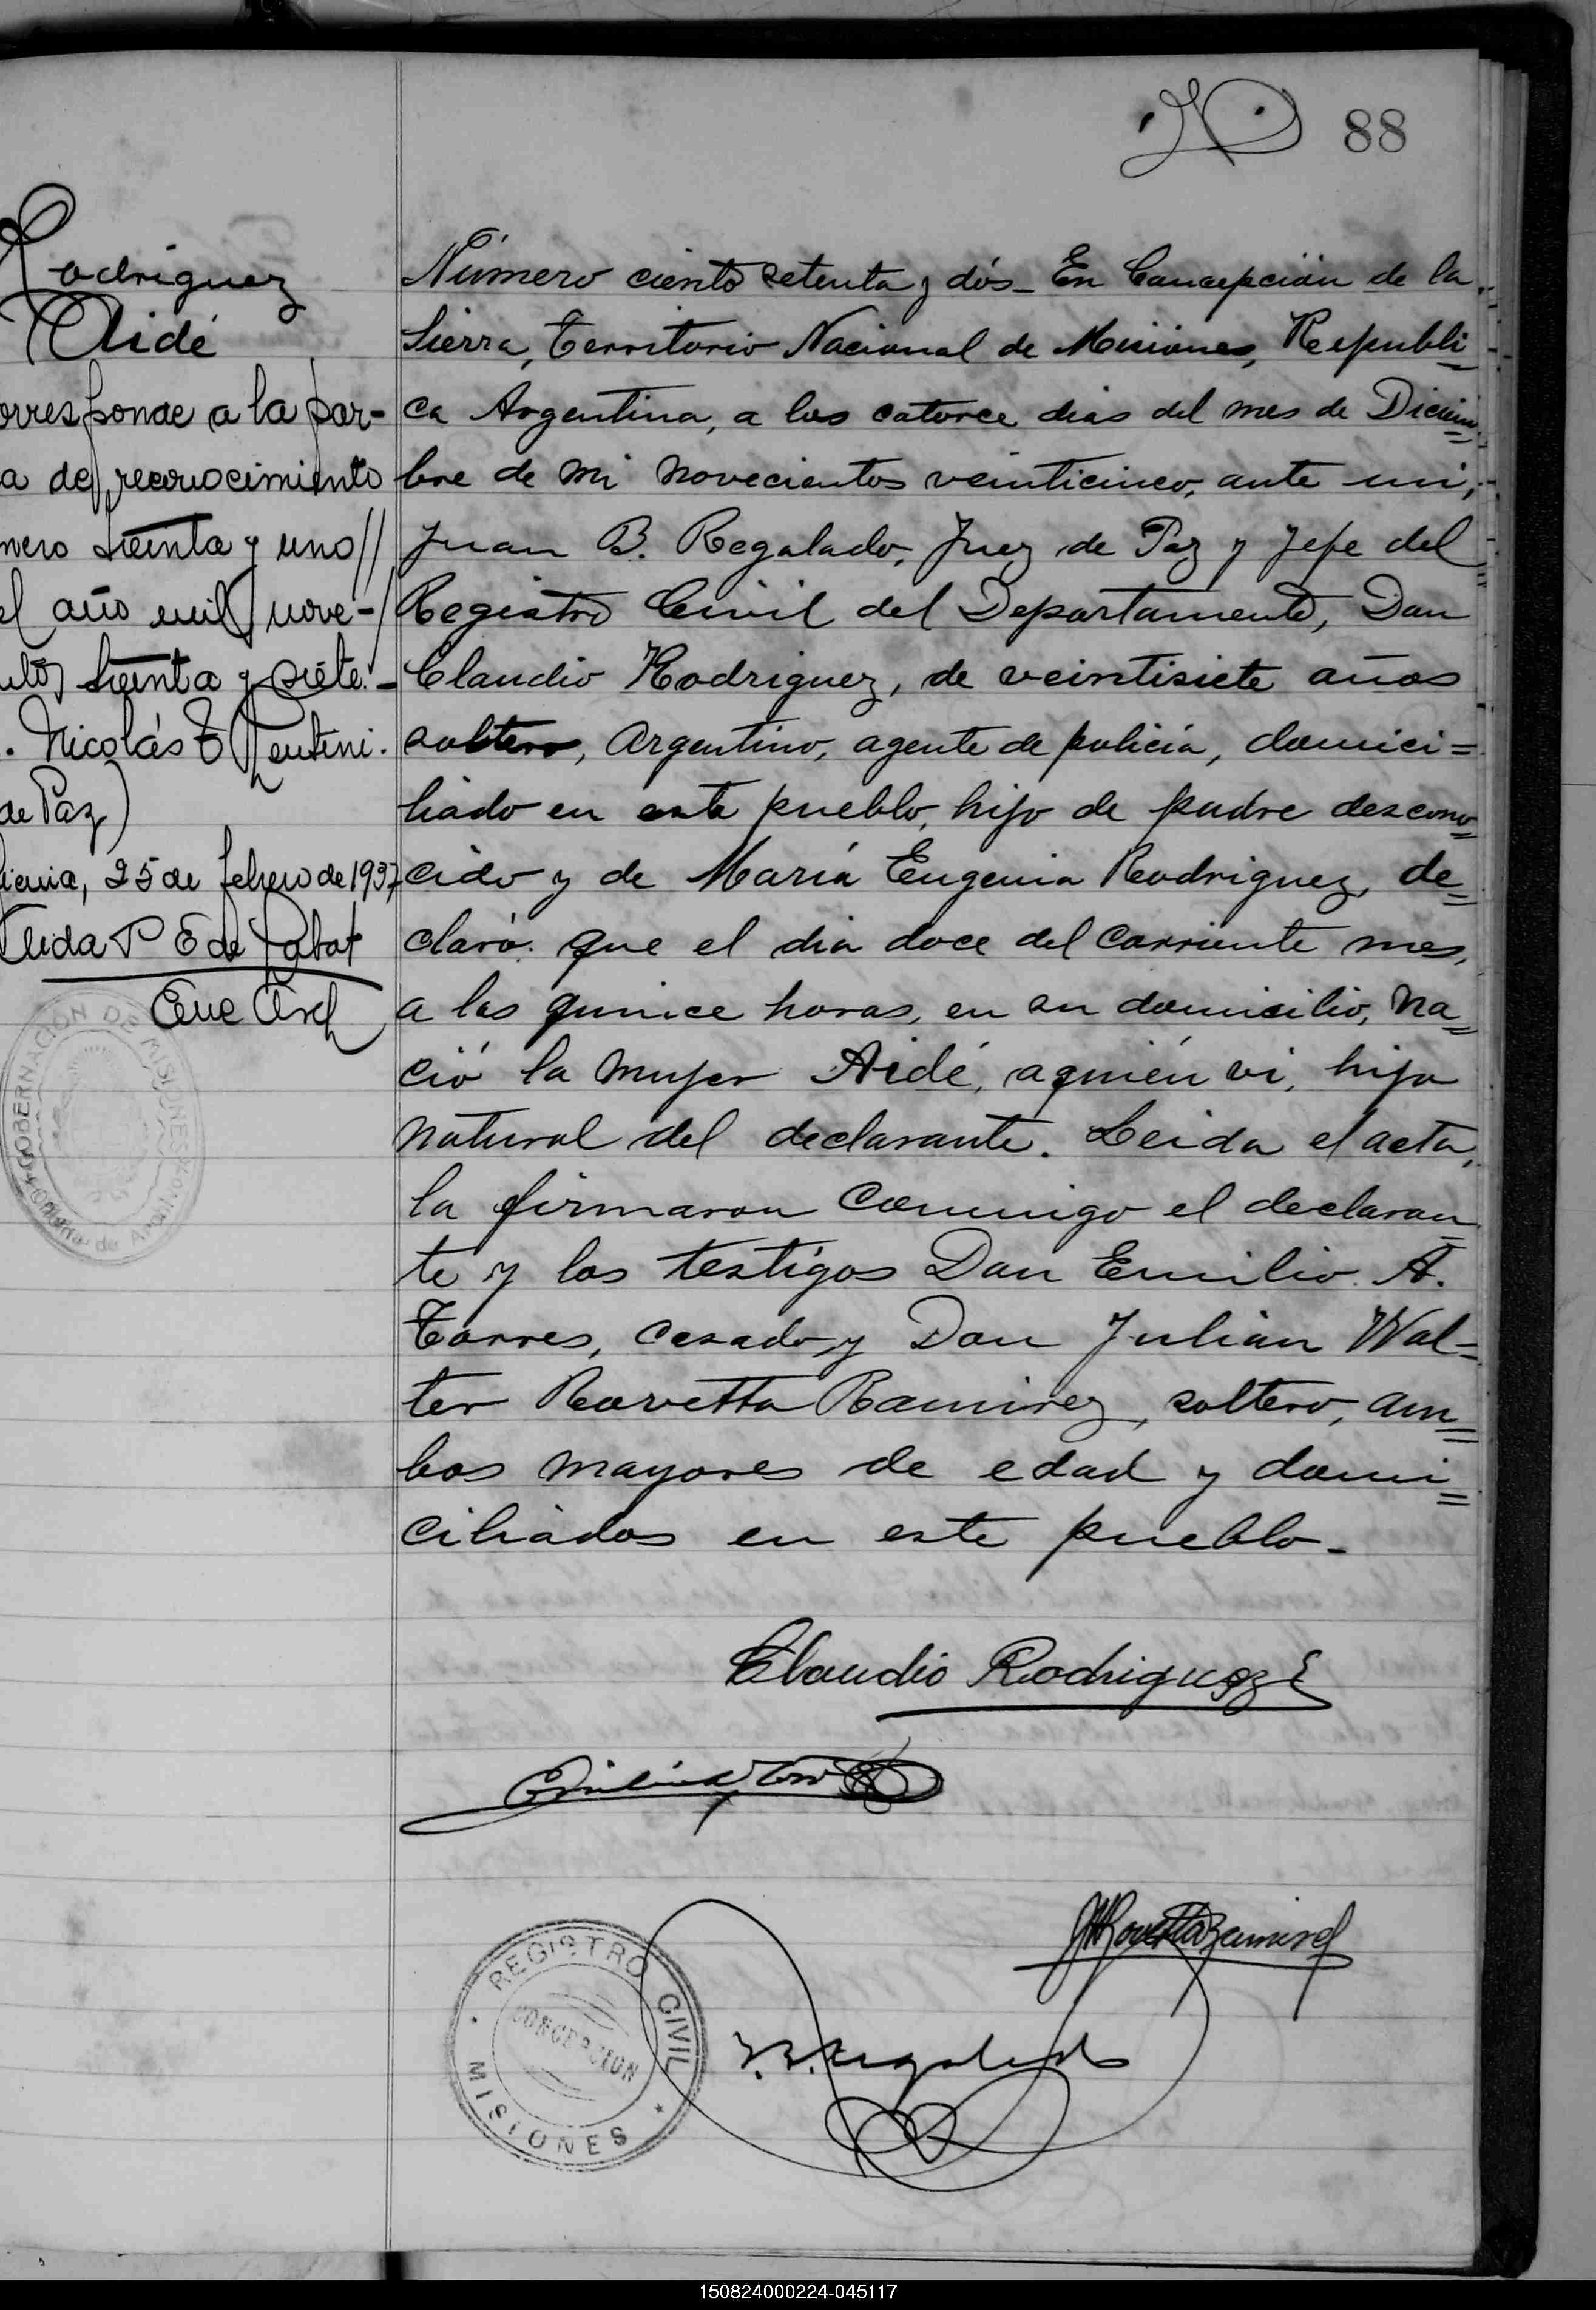 88
Rodriguez
Aidé
orresponde a la par-
a de reconocimiento
mero treinta y uno//
el año mil nove-/
ntos treinta y siete.-
. Nicolás
de Paz)
25 de febrero de 1937
Número ciento setenta y dós_ En Concepción de la
Sierra, Territorio Nacional de Misiones, Republi
ca Argentina, a los catorce dias del mes de Diciem
bre de mi novecientos veinticinco, ante mi,
Juan B. Regalado, Juez de Paz y Jefe del
Registro Civil del Departamento, Don
Claudio Rodriguez, de veintisiete años
soltero, Argentino, agente de policia, domici=
liado en este pueblo, hijo de padre descono=
cido y de María Eugenia Rodriguez, de=
claró: que el dia doce del corriente mes,
a las quince horas, en su domicilio, na=
ció la mujer Aidé, aquién vi, hija
natural del declarante. Leida el acta,
la firmaron conmigo el declaran=
te y los testigos Don Emilio A.
Torres, casado, y Don Julián Wal=
ter Rovetta Ramirez, soltero, am=
bos mayores de edad y domi=
ciliados en este pueblo._
Claudio Rodriguez
GOBERNACION DE MISIONES
REGISTRO CIVIL
CONCEPCION
MISIONES
150824000224-045117